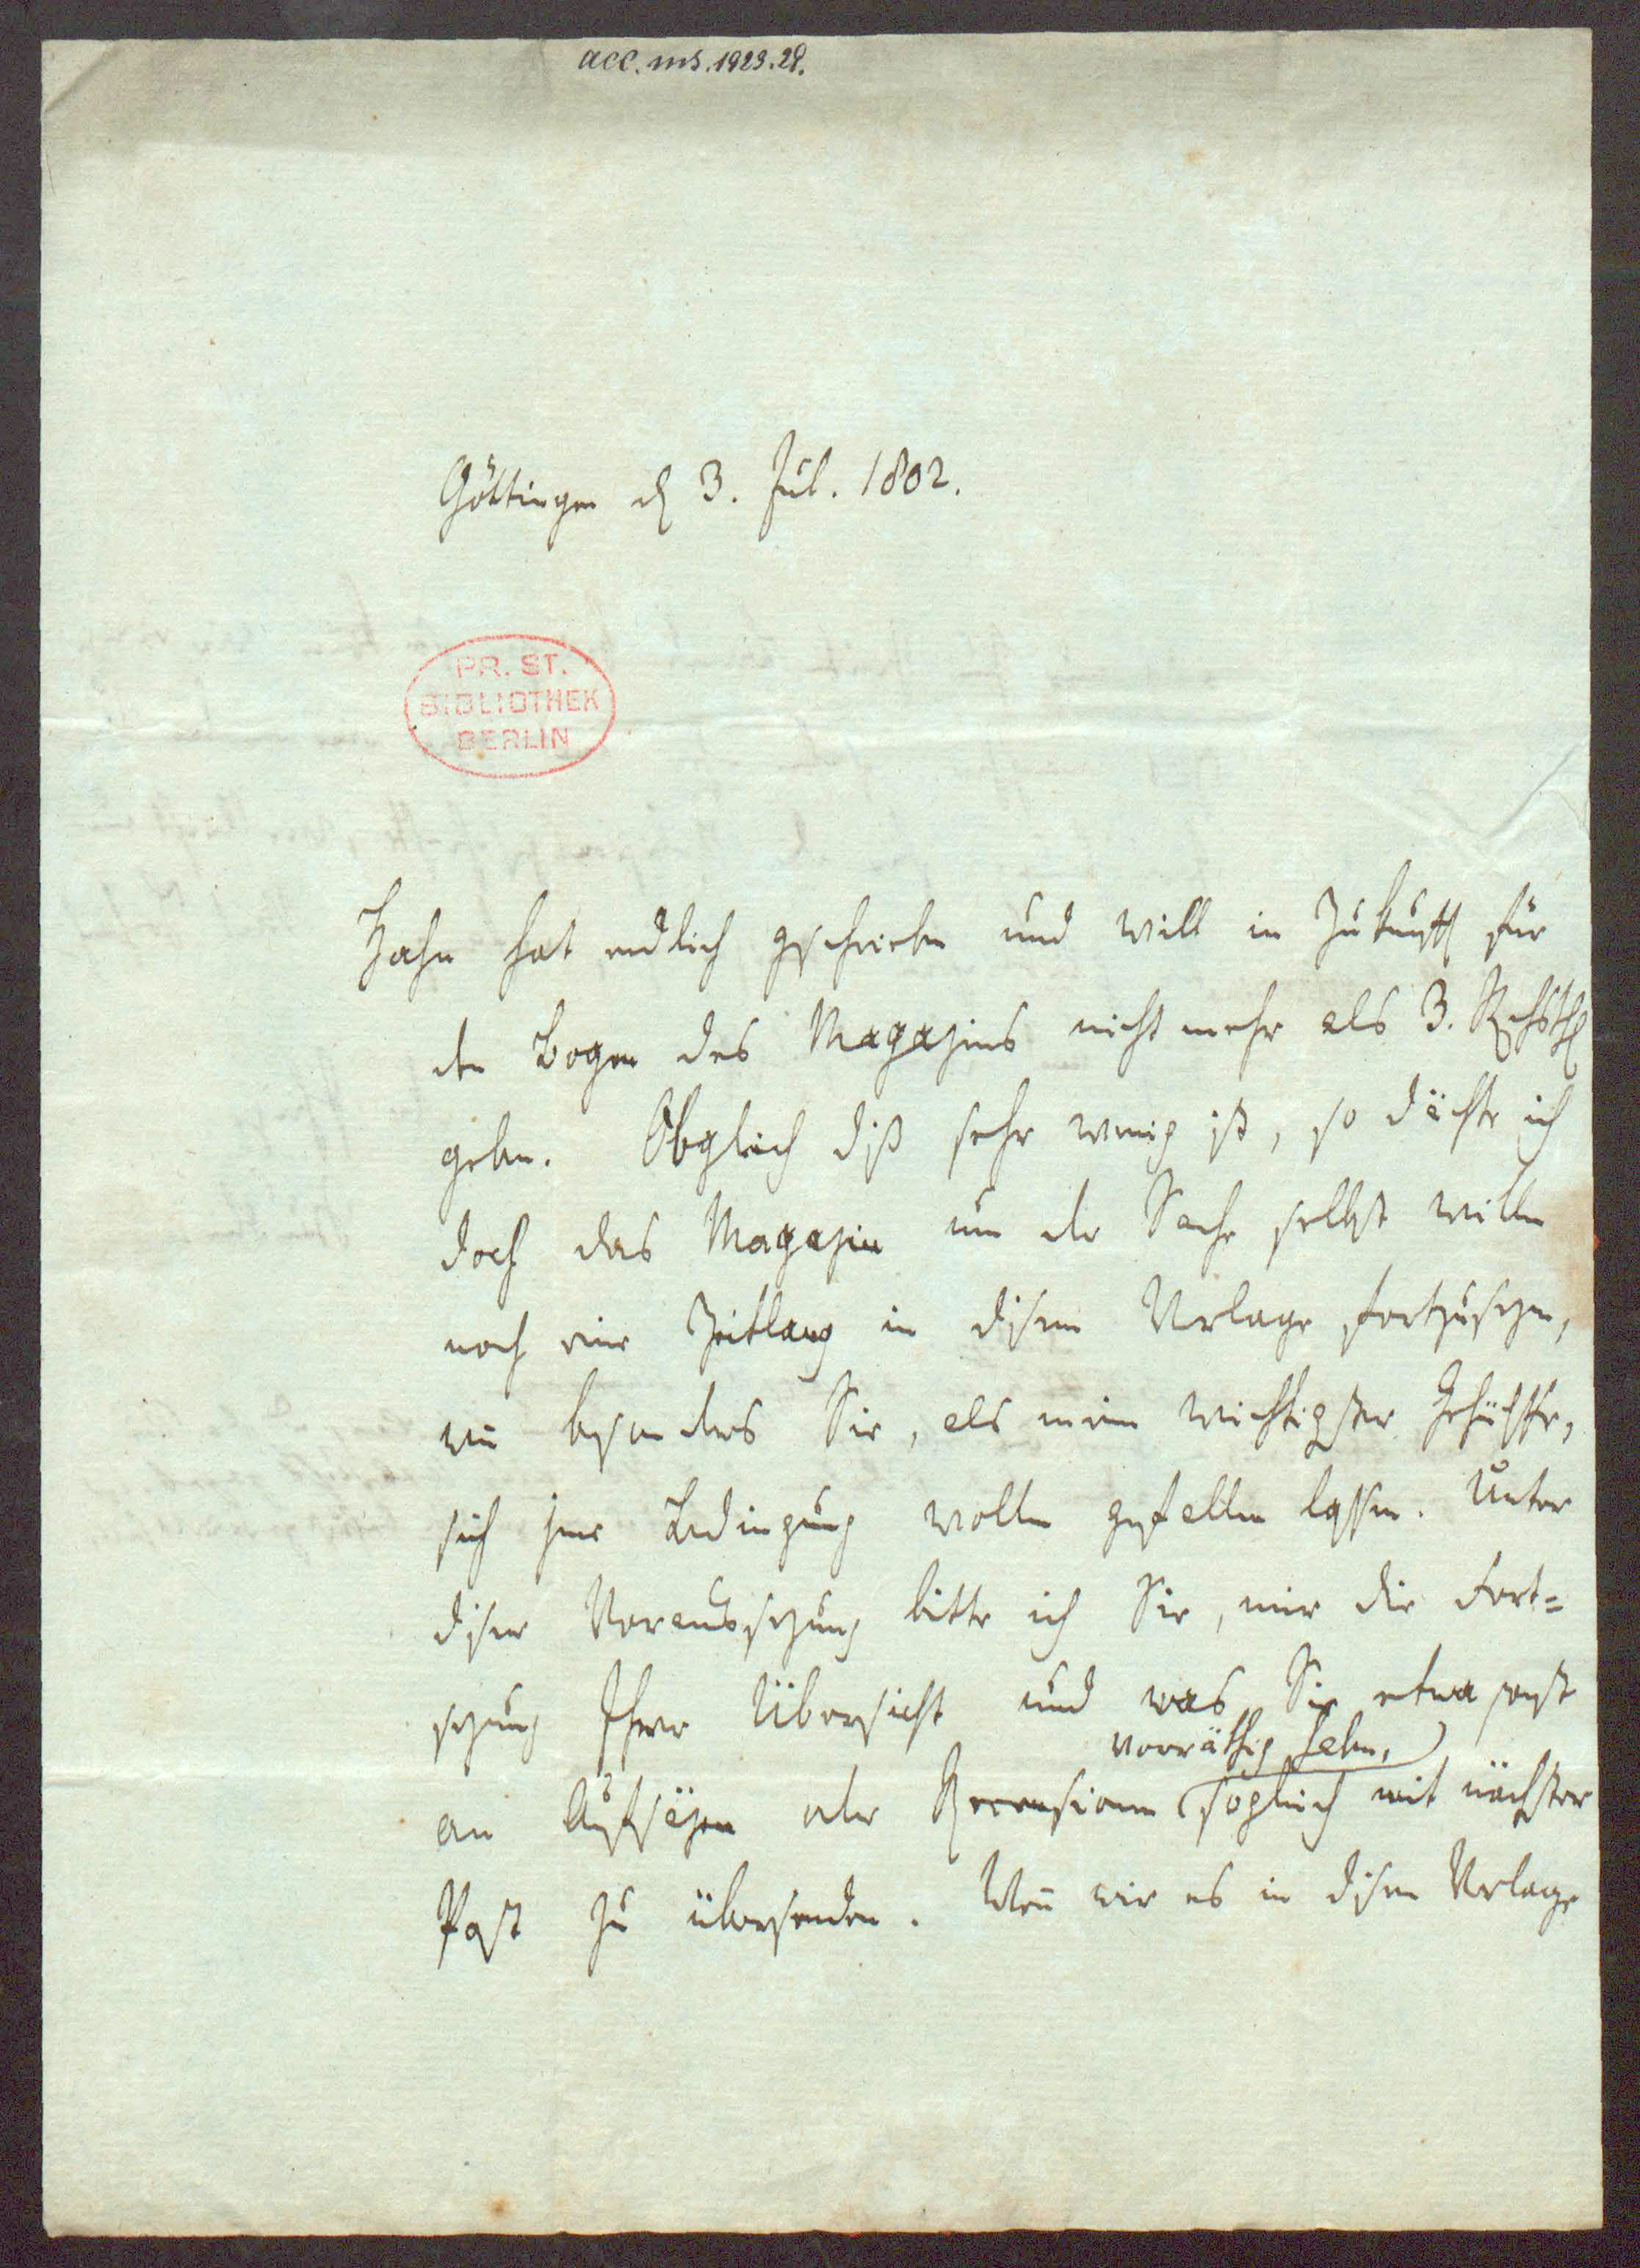 acc. ms. 1923.28.
Göttingen d 3. Jul. 1802.
PR. ST.
BIBLIOTHEK
BERLIN
Hahn hat endlich geschrieben und will in Zukunft für
den Bogen des Magazins nicht mehr als 3. Rchsthl
geben. Obgleich diß sehr wenig ist, so dächte ich
doch das Magazin um der Sache selbst willen
noch eine Zeitlang in disem Verlage fortzusezen,
wenn besonders Sie, als mein wichtigster Gehülfe,
sich jene Bedingung wollen gefallen lassen. Unter
diser Voraussezung bitte ich Sie, mir die Fort=
sezung Ihrer Übersicht und was Sie etwa sonst
vorräthig haben,
an Aufsäzen oder Recensionen sogleich mit nächster
Post zu übersenden. Wenn wir es in disem Verlage